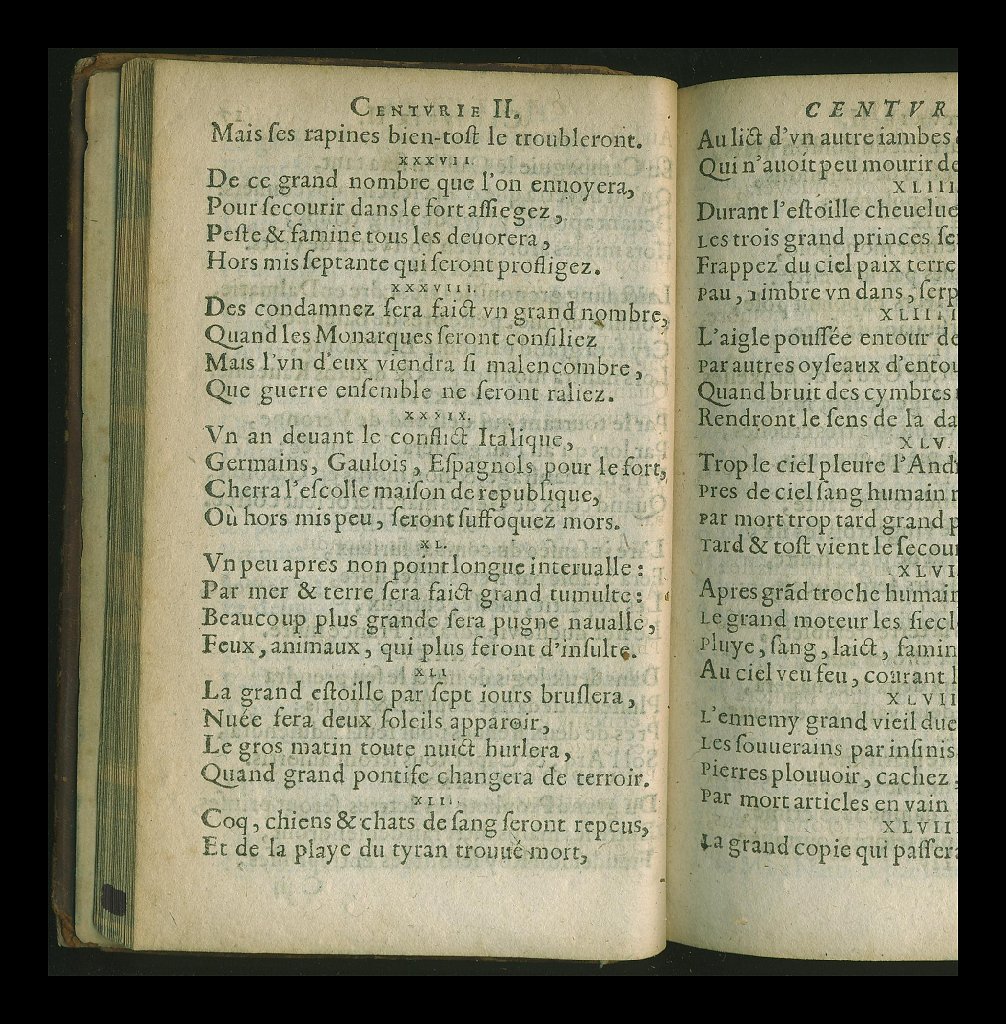 CENTVRIE II.
Mais ſes rapines bien-toſt le troubleront.
XXXVII.
De ce grand nombre que l'on enuoyera,
Pour ſecourir dans le fort aſſiegez,
Peſte & famine tous les deuorera,
Hors mis ſeptante qui ſeront profligez.
XXXVIII.
Des condamnez ſera faict vn grand nombre,
Quand les Monarques ſeront conſiliez
Mais l'vn d'eux viendra ſi malencombre,
Que guerre enſemble ne ſeront raliez.
XXXIX.
Vn an deuant le conflict Italique,
Germains, Gaulois, Eſpagnols pour le fort,
Cherra l'eſcolle maiſon de republique,
Où hors mis peu, ſeront ſuffoquez mors.
XL.
Vn peu apres non point longue interualle:
Par mer & terre ſera faict grand tumulte:
Beaucoup plus grande ſera pugne naualle,
Feux, animaux, qui plus feront d'inſulte.
XLI.
La grand eſtoille par ſept iours bruſlera,
Nuée fera deux ſoleils apparoir,
Le gros matin toute nuict hurlera,
Quand grand pontife changera de terroir.
XLII.
Coq, chiens & chats de ſang ſeront repeus,
Et de la playe du tyran trouué mort,
CENTVR
Au lict d'vn autre iambes
Qui n'auoit peu mourir de
XLIII
Durant l'eſtoille cheuelue
Les trois grand princes
Frappez du ciel paix terre
Pau, 1imbre vn dans, ſerp
XLIIII
L'aigle pouſſée entour de
Par autres oyſeaux d'entou
Quand bruit des cymbres
Rendront le ſens de la da
XLV.
Trop le ciel pleure l'And
Pres de ciel ſang humain
Par mort trop tard grand p
Tard & toſt vient le ſecou
XLVI
Apres grãd troche humain
Le grand moteur les ſiecl
Pluye, ſang, laict, famin
Au ciel veu feu, courant l
XLVII
L'ennemy grand vieil due
Les ſouuerains par infinis
Pierres plouuoir, cachez,
Par mort articles en vain
XLVII
La grand copie qui paſſera